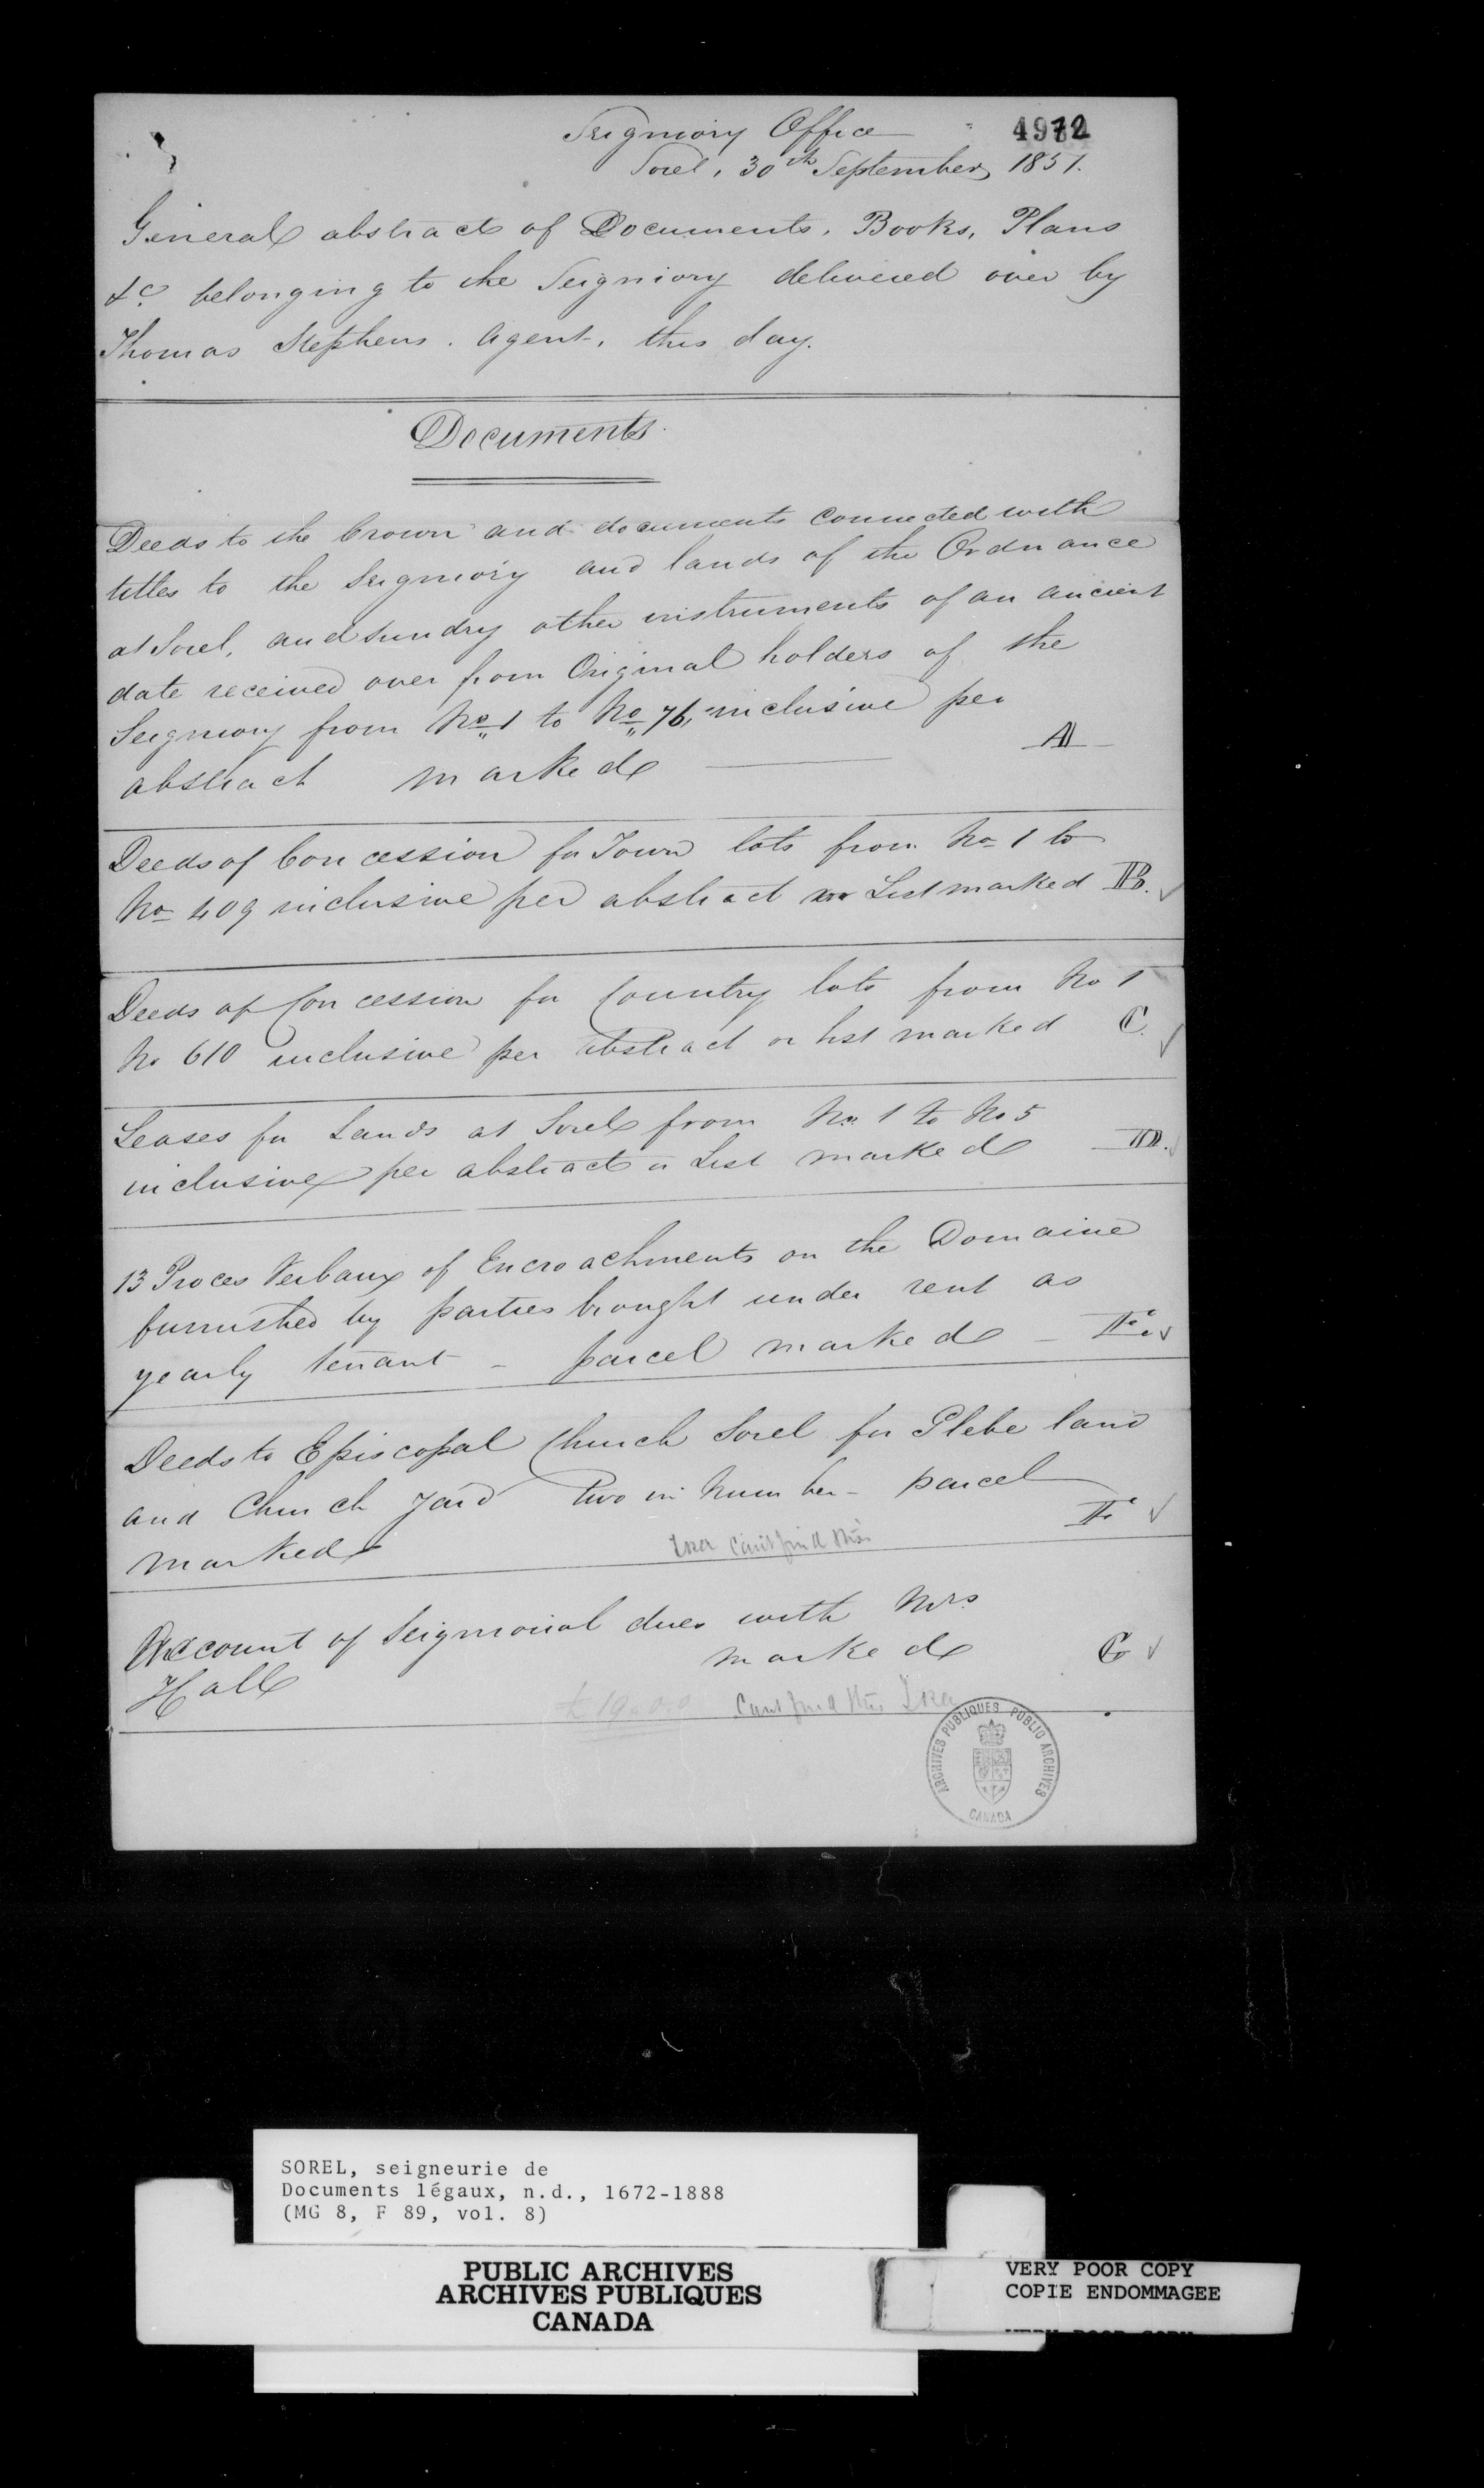 Seigniory Office
4972
Sorel, 30th September, 1851.
General abstract of Documents, Books, Plans
&c. belonging to the Seigniory delivered over by
Thomas Stephens. Agent, this day.
Documents.
Deeds to the Crown and documents connected with
titles to the Seigniory and lands of the Ordnance
at Sorel, and sundry other instruments of an ancient
date received over from Original holders of the
Seigniory from No 1 to No 76, inclusive per
abstract marked — A
Deeds of Concession for Town lots from No 1 to
No 409 inclusive per abstract or List marked B. ✓
Deeds of Concession for Country lots from No 1
No 610 inclusive per abstract or list marked C. ✓
Leases for Lands at Sorel from No 1 to No 5
inclusive per abstract or List marked D. ✓
13 Proces Verbaux of Encroachments on the Domaine
furnished by parties brought under rent as
yearly tenant - parcel marked - E. ✓
Deeds to Episcopal Church Sorel for Glebe land
and Church Yard two in Number - parcel
marked F. ✓
Can't find this
Account of Seigniorial dues with Mrs.
Hall marked G ✓
£ 19.0.0 Cant find this
ARCHIVES PUBLIQUES PUBLIC ARCHIVES
CANADA
SOREL, seigneurie de
Documents légaux, n.d., 1672-1888
(MG 8, F 89, vol. 8)
PUBLIC ARCHIVES
ARCHIVES PUBLIQUES
CANADA
VERY POOR COPY
COPIE ENDOMMAGEE
VERY POOR COPY